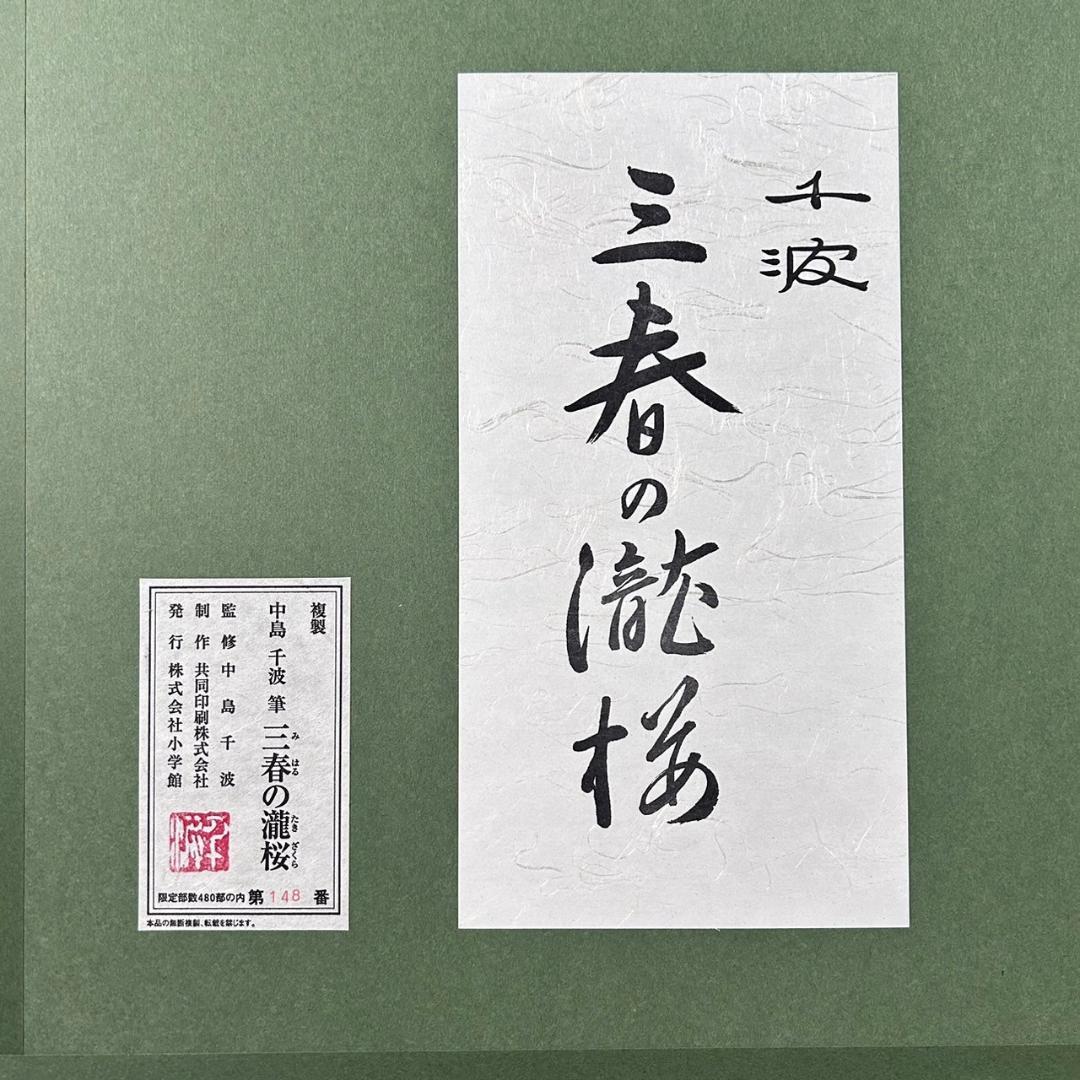 千波
三春の瀧桜
複製
中島 千波 筆 三春の瀧桜
み はる たき ざくら
監修 中島千波
制作 共同印刷株式会社
発行 株式会社小学館
限定部数480部の内 第148番
本品の無断複製、転載を禁じます。